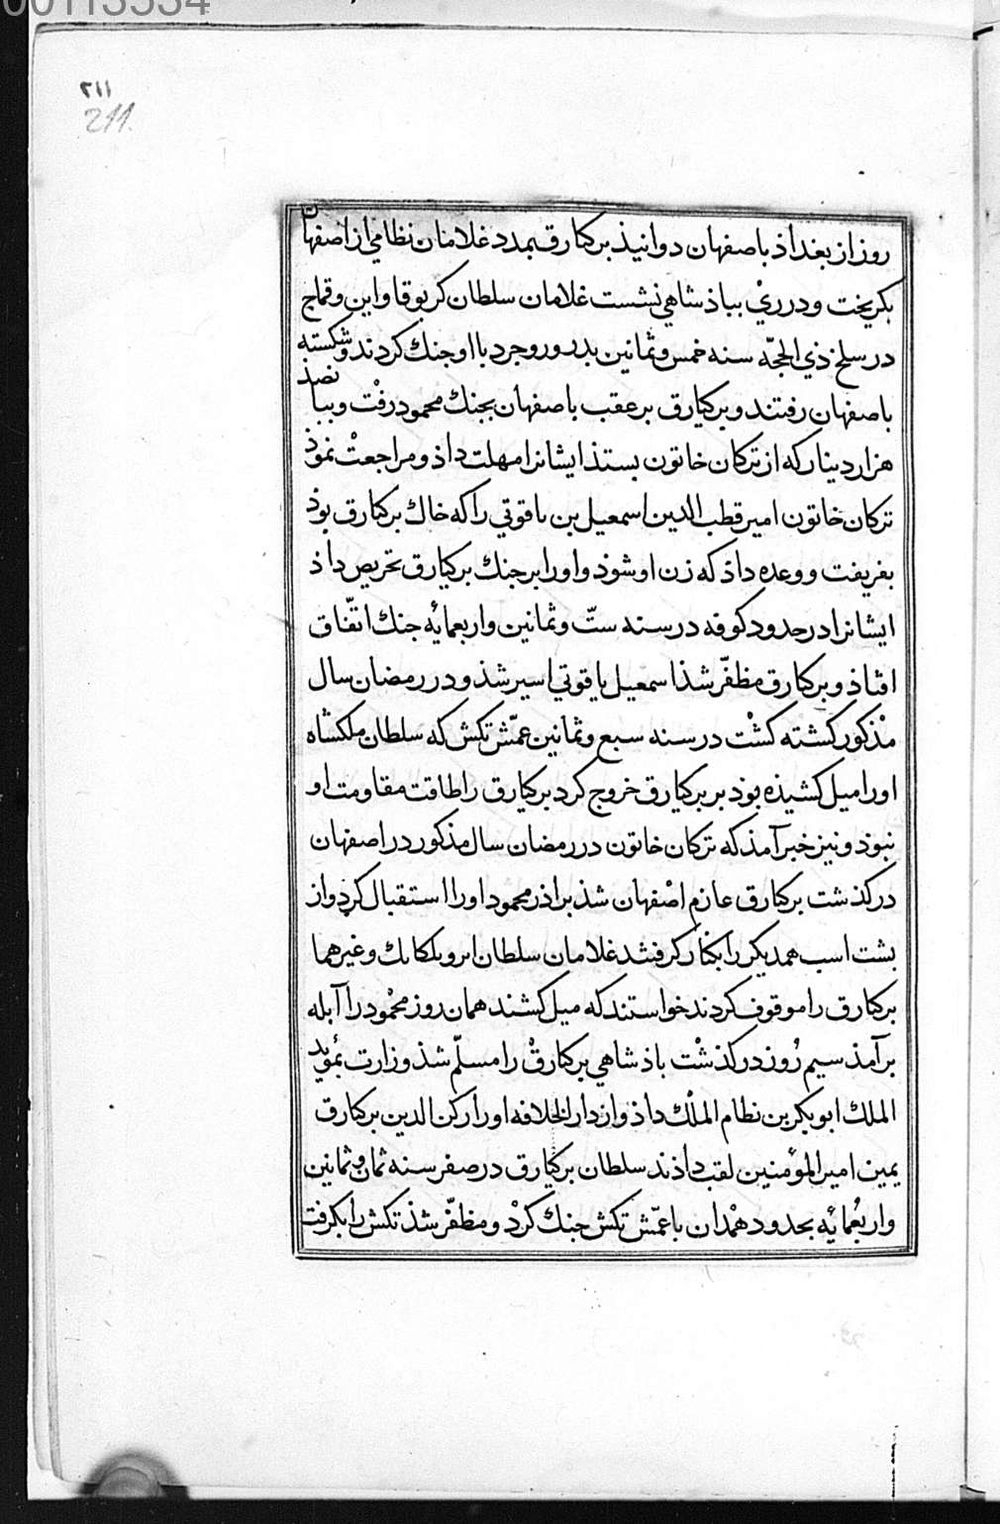 00113534
٢١١
211.
روز از بغداذ باصفهان دوانیذ برکیارق بمدد غلامان نظامي از اصفهان
بکریخت و در ريْ بباذشاهي نشست غلامان سلطان کربوقا واین وقماج
در سلخ ذي الحجّه سنه خمس وثمانین بدر وروجرد با او جنك کردند وشکسته
باصفهان رفتند وبرکیارق بر عقب باصفهان بجنك محمود رفت وببانصذ
هزار دینار که از ترکان خاتون بستذ ایشانرا مهلت داذ ومراجعتْ نموذ
ترکان خاتون امیر قطب الدین اسمعیل بن یاقوتي را که خاك برکیارق بوذ
بفریفت ووعده داذ که زن او شوذ واورا بر جنك برکیارق تحریص داذ
ایشانرا در حدود کوفه در سنه ستّ وثمانین واربعمایٔه جنك اتّفاق
افتاذ وبرکیارق مظفّر شذ اسمعیل یاقوتي اسیر شذ و در رمضان سال
مذکور کشته کشْت در سنه سبع وثمانین عمّش تکش که سلطان ملکشاه
اورا میل کشیذه بوذ بر برکیارق خروج کرد برکیارق را طاقت مقاومت او
نبوذ ونیز خبر آمذ که ترکان خاتون در رمضان سال مذکور در اصفهان
درکذشت برکیارق عازم اصْفهان شذ براذر محمود اورا استقبال کرد واز
بشت اسب همدیکر را بکنار کرفتند غلامان سلطان انر وبلکابك وغیرهما
برکیارق را موقوف کردند خواستند که میل کشند همان روز محمْود را آبله
برآمذ سیم رُوز درکذشْت باذشاهي برکیارقْ را مسلّم شذ وزارت بمُوید
الملك ابو بکر بن نظام الملْك داذ واز دار الخلافه اورا رکن الدین برکیارق
یمین امیر المؤمنین لقب داذند سلطان برکیارق در صفر سنه ثمان وثمانین
واربعُمایٔه بحدود همْدان با عمّش تکش جنك کردْ ومظفّر شذ تکش را بکرفت